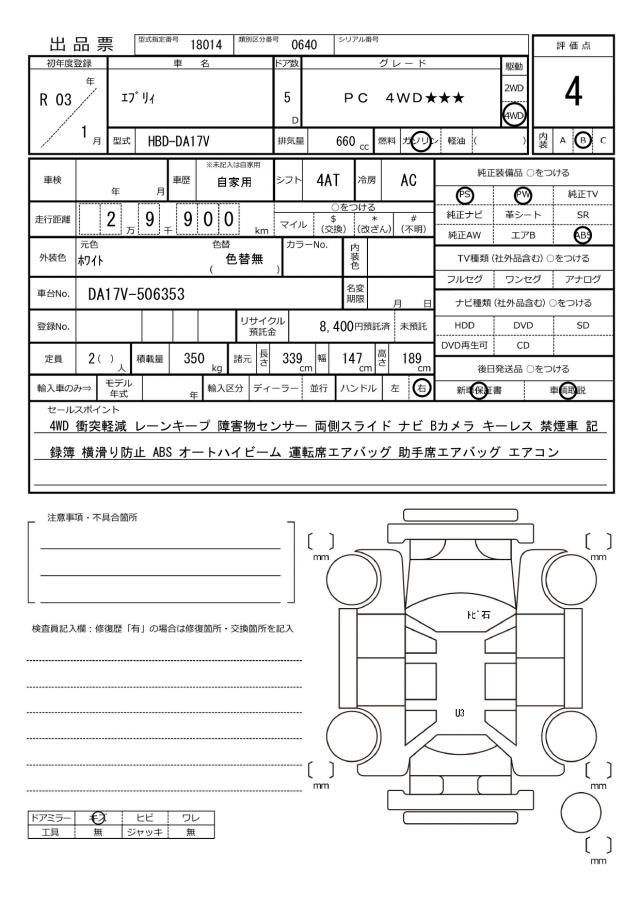 出品票 型式指定番号 18014 類別区分番号 0640 シリアル番号
評価点
4
初年度登録 車名 ドア数 グレード 駆動
R 03 年 1 月
ｴﾌﾞﾘｨ
5 D
PC 4WD★★★
2WD
4WD
型式 HBD-DA17V 排気量 660 cc 燃料 ガソリン 軽油 ( )
内装 A B C
車検 年 月 車歴 ※未記入は自家用 自家用 シフト 4AT 冷房 AC
走行距離 2 万 9 千 9 0 0 km
○をつける
マイル $(交換) *(改ざん) #(不明)
外装色 元色 ﾎﾜｲﾄ 色替 ( 色替無 ) カラーNo. 内装色
車台No. DA17V-506353 名変期限 月 日
登録No. リサイクル預託金 8,400円預託済 未預託
定員 2( )人 積載量 350 kg 諸元 長さ 339 cm 幅 147 cm 高さ 189 cm
輸入車のみ⇒ モデル年式 年 輸入区分 ディーラー 並行 ハンドル 左 右
純正装備品 ○をつける
PS PW 純正TV
純正ナビ 革シート SR
純正AW エアB ABS
TV種類(社外品含む)○をつける
フルセグ ワンセグ アナログ
ナビ種類(社外品含む)○をつける
HDD DVD SD
DVD再生可 CD
後日発送品 ○をつける
新車保証書 車輌取説
セールスポイント
4WD 衝突軽減 レーンキープ 障害物センサー 両側スライド ナビ Bカメラ キーレス 禁煙車 記
録簿 横滑り防止 ABS オートハイビーム 運転席エアバッグ 助手席エアバッグ エアコン
注意事項・不具合箇所
検査員記入欄：修復歴「有」の場合は修復箇所・交換箇所を記入
ドアミラー キズ ヒビ ワレ
工具 無 ジャッキ 無
[ ] mm
[ ] mm
ﾄﾋﾞ石
U3
[ ] mm
[ ] mm
[ ] mm